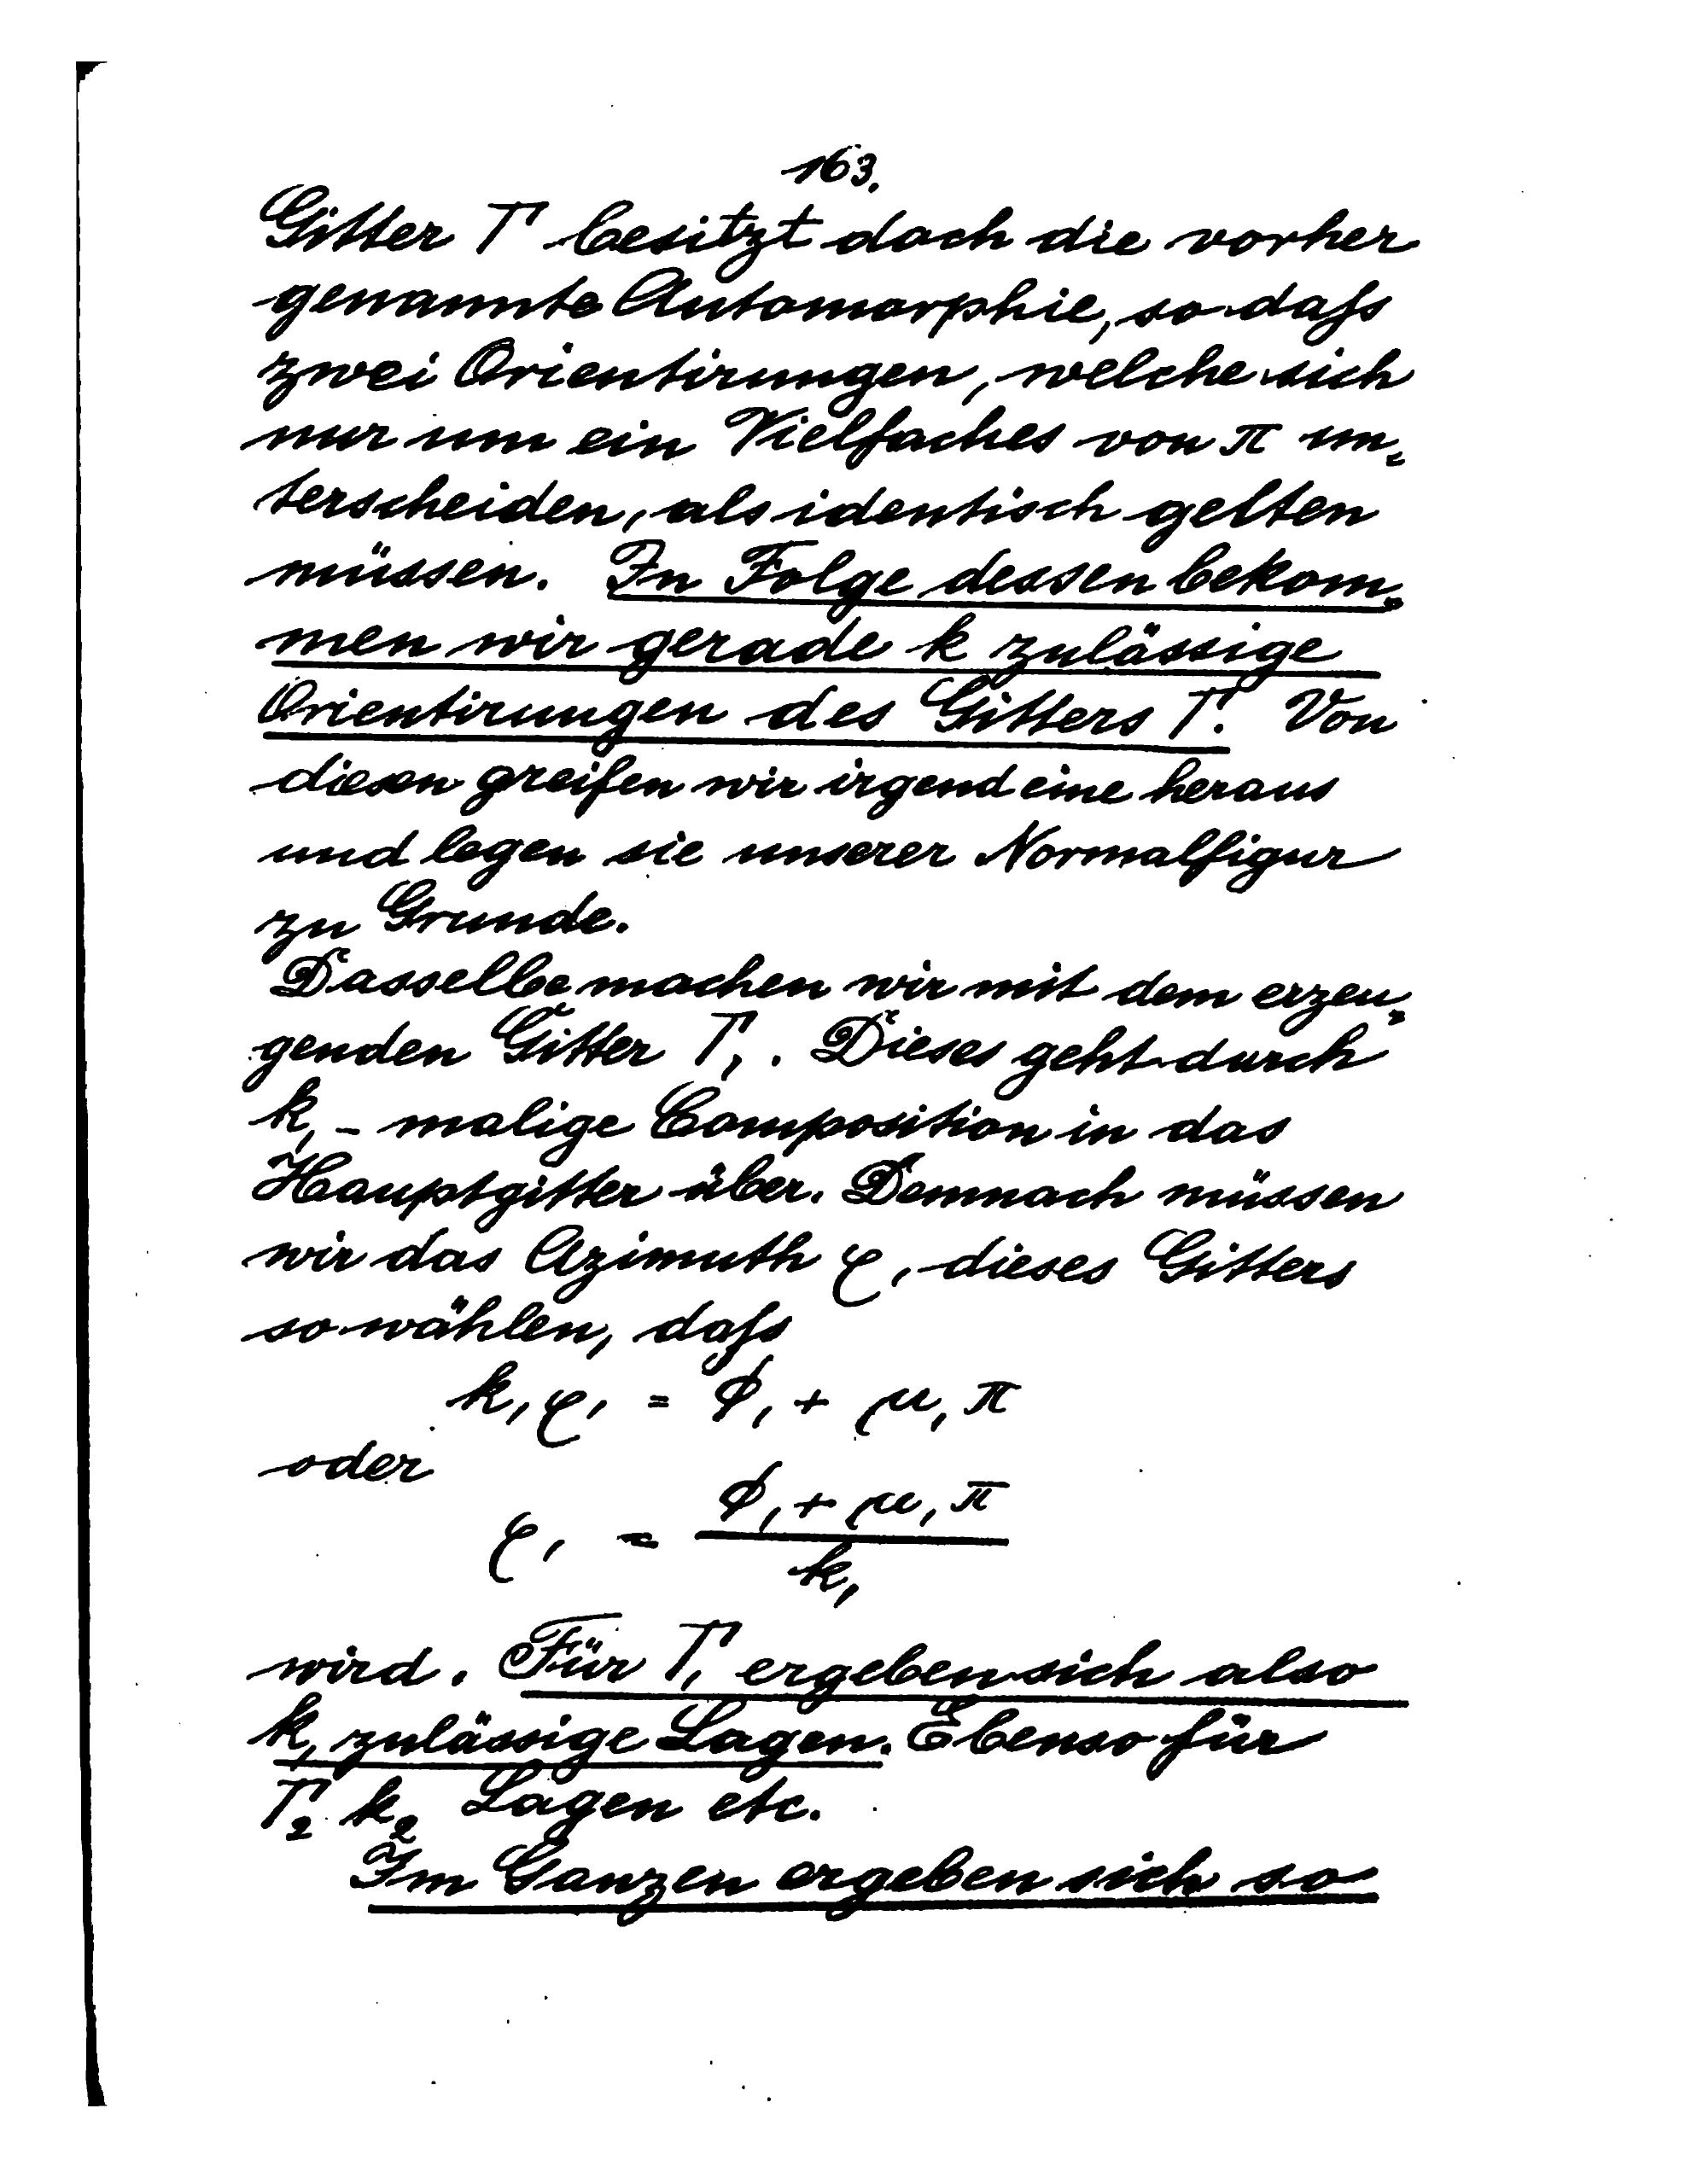 163.
Gitter Γ besitzt doch die vorher
genannte Automorphie, so daſs
zwei Orientirungen, welche sich
nur um ein Vielfaches von π un⸗
terscheiden, als identisch gelten
müssen. In Folge dessen bekom⸗
men wir gerade k zulässige
Orientirungen des Gitters Γ. Von
diesen greifen wir irgend eine heraus
und legen sie unserer Normalfigur
zu Grunde.
Dasselbe machen wir mit dem erzeu⸗
genden Gitter Γ₁. Dieses geht durch
k₁-malige Composition in das
Hauptgitter über. Demnach müssen
wir das Azimuth φ₁ dieses Gitters
so wählen, daſs
k₁φ₁ = Φ₁ + μ₁π
oder
φ₁ = (Φ₁ + μ₁π) / k₁
wird. Für Γ₁ ergeben sich also
k₁ zulässige Lagen. Ebenso für
Γ₂ k₂ Lagen etc.
Im Ganzen ergeben sich so